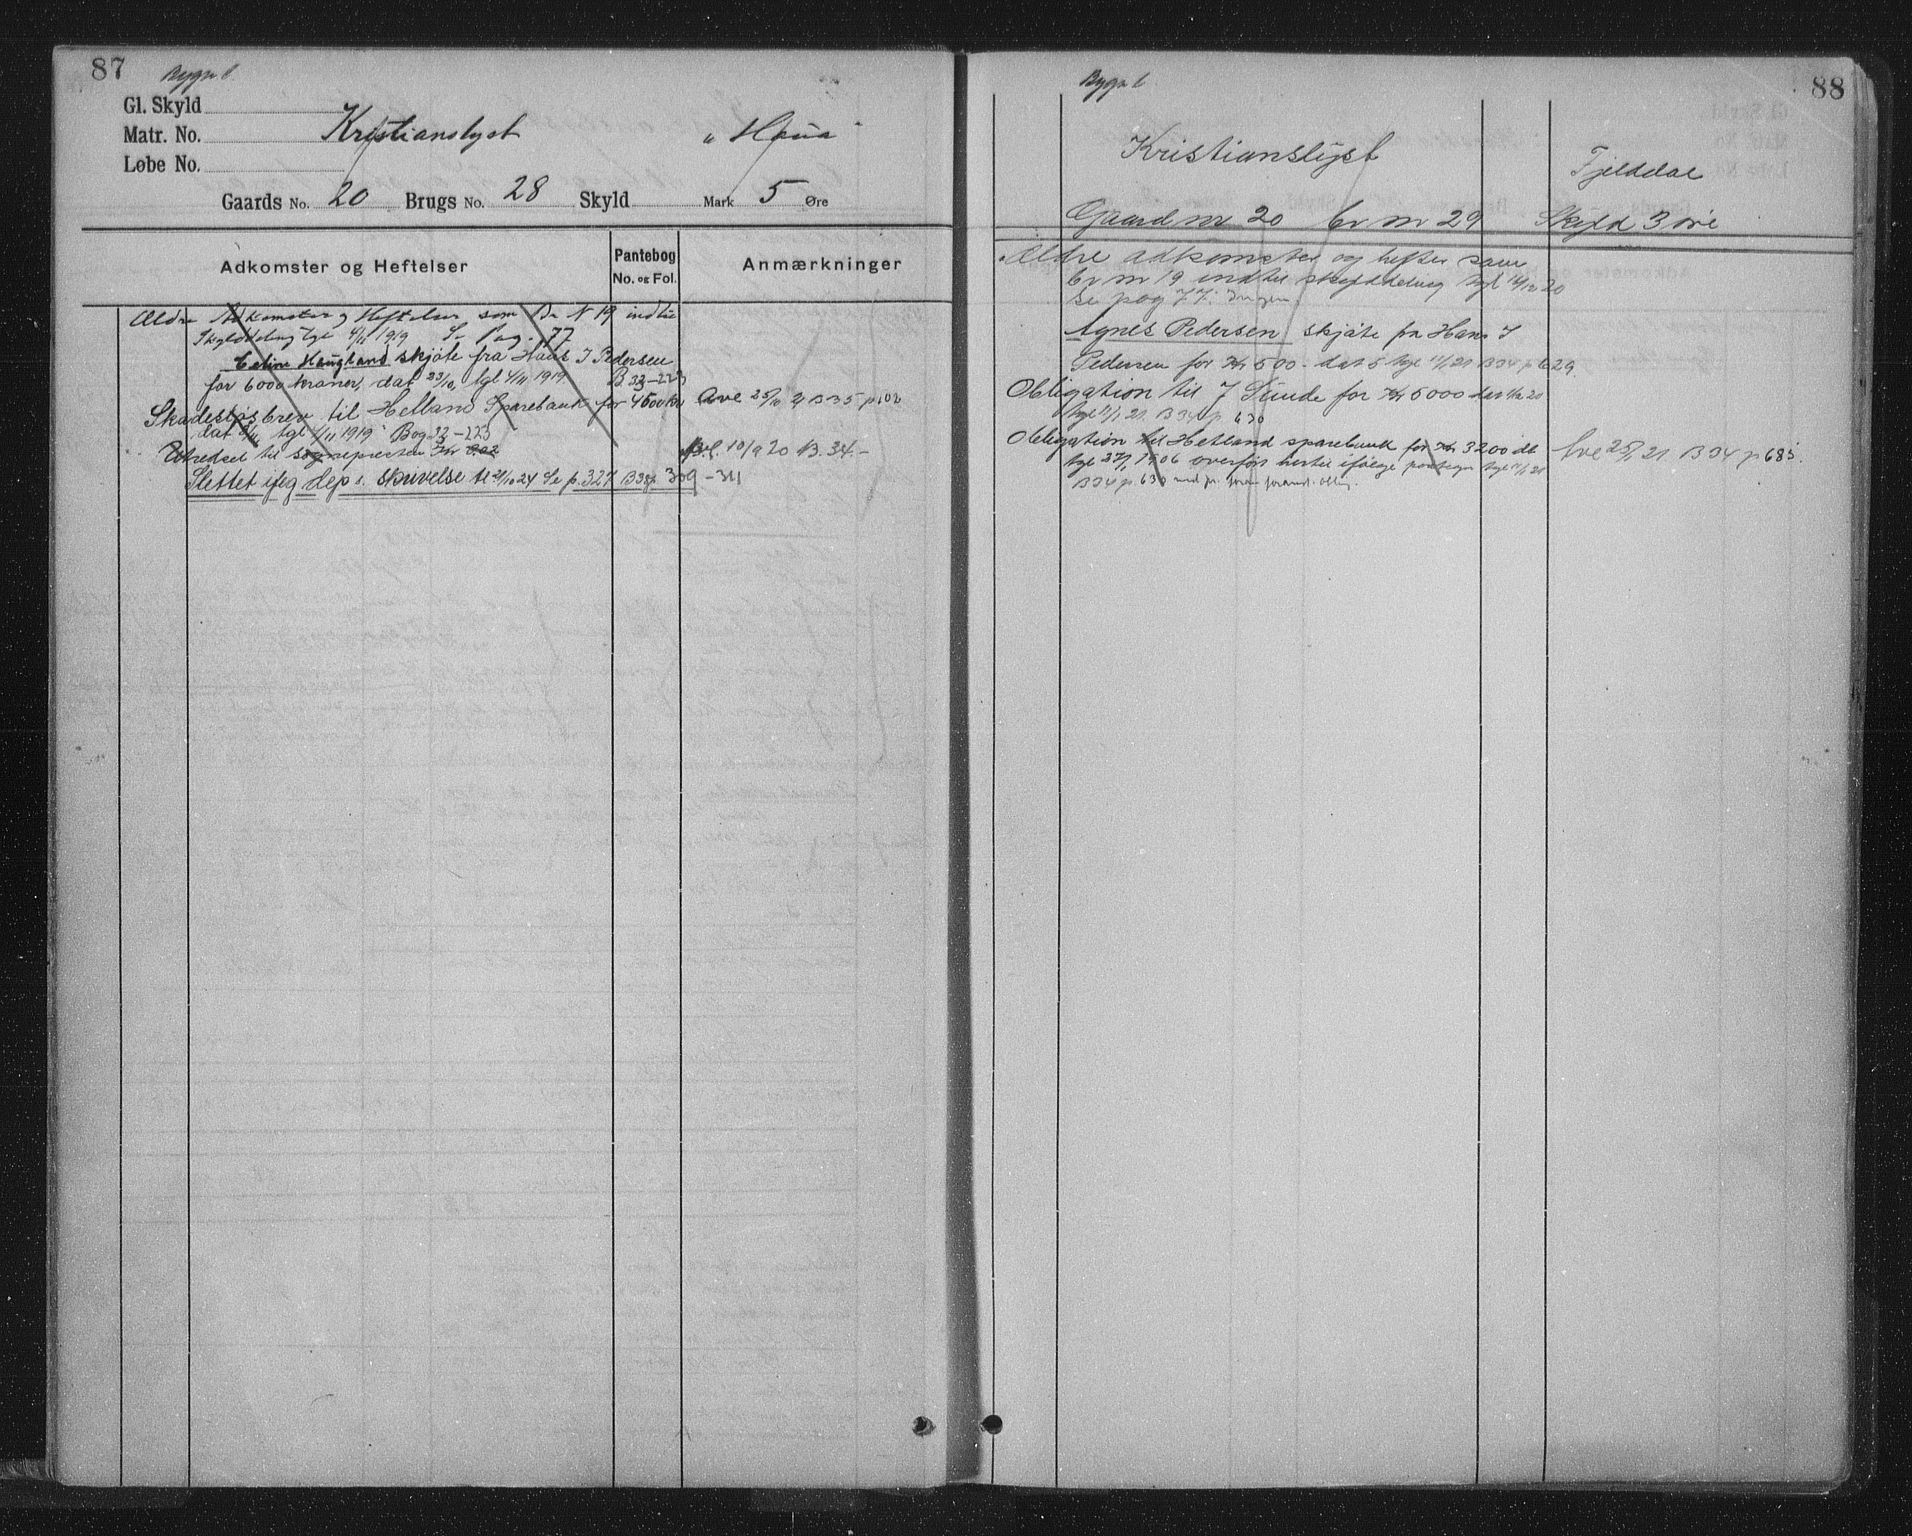 87
Gl. Skyld
Matr. No. Kristianslyst "Haua"
Løbe No.
Gaards No. 20 Brugs No. 28 Skyld Mark 5 Øre
Adkomster og Heftelser
Pantebog
No. og Fol.
Anmærkninger
Ældre Adkomster og Heftelser som Br N 19 indtil
Skylddeling tgl 4/11 1919 Se Pag. 77
Celine Haugland skjøte fra Hans J Pedersen
for 6000 kroner, dat 23/10, tgl 4/11 1919 B 33-223
Skadesløsbrev til Hetland Sparebank for 4500 kr Ave 25/10 21 B 35 p 102
dat tgl 4/11 1919 Bog 33-223
Utredsel til sognepresten Kr 10/9 20 B. 34.-
Slettet ifg Dep s. skrivelse tl 21/10 24 Se p. 327 B 38 p 309-311
88
Kristianslyst
Fjelddal
Gaard nr 20 br nr 29 Skyld 3 øre
Ældre adkomster og hefter som
br nr 19 indtil skylddeling tgl 16/12 20
se pag 77. Ingen
Agnes Pedersen skjøte fra Hans J
Pedersen for Kr 500.- dat tgl 11/1 21 B 34 p 629.
Obligation til J Sunde for Kr 5000 dat 20
tgl 11/1 21 B 34 p 630
Obligation til Hetland sparebank for Kr 3200 dt Ave 25/1 21 B 34 p 685.
tgl 27/1 1906 overført hertil ifølge tgl 11/1 21
B 34 p 630